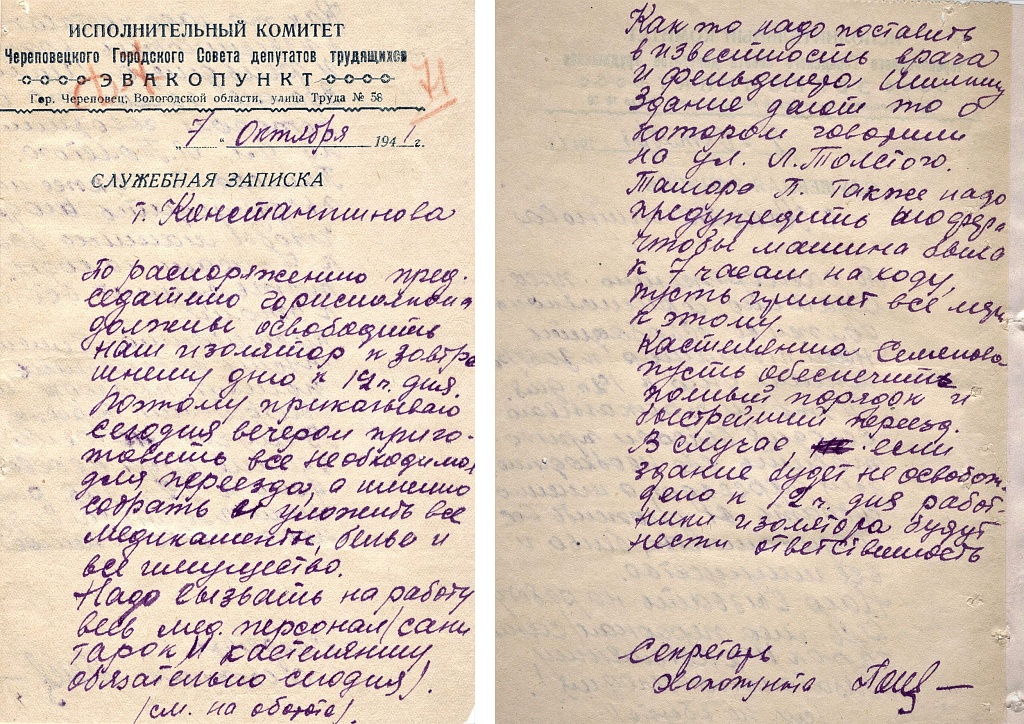 ИСПОЛНИТЕЛЬНЫЙ КОМИТЕТ
Череповецкого Городского Совета депутатов трудящихся
ЭВАКОПУНКТ
Гор. Череповец, Вологодской области, улица Труда № 58
71
„7“ Октября 1941 г.
СЛУЖЕБНАЯ ЗАПИСКА
т. Константинова
По распоряжению пред-
седателю Горисполкома
должны освободить
наш изолятор к завтра
шнему дню к 12 ч. дня.
Поэтому приказываю
сегодня вечером приго-
товить все необходимо
для переезда, а именно
собрать и уложить все
медикаменты, белье и
все имущество.
Надо вызвать на работу
весь мед. персонал (сани
тарок) и кастеляншу
обязательно сегодня).
(см. на обороте).
Как то надо поставить
в известность врача
и фельдшера
Здание дают то о
котором говорили
на ул. Л. Толстого.
Также надо
предупредить
чтобы машина была
к 7 часам на ходу,
пусть примет все меры
к этому.
Кастелянша Семенова
пусть обеспечить
полный порядок и
быстрейший переезд.
В случае, если
здание будет не освобож-
дено к 12 ч. дня работ-
ники изолятора будут
нести ответственность
Секретарь